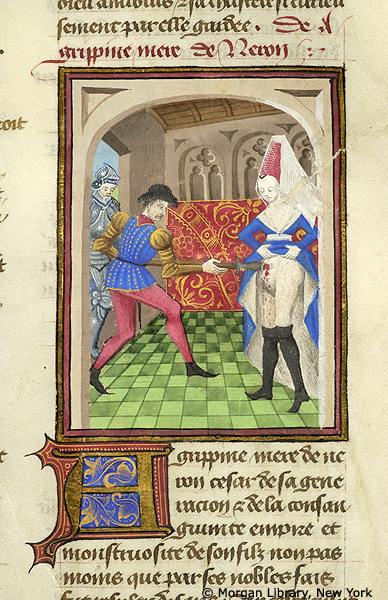 sement par elle gardee. De A
grippine mere de Neron
Agrippine mere de ne
ron cesar de sa gene
racion & de la consan
guinite empre et
monstruosite de son filz non pas
moins que par ses nobles fais
© Morgan Library, New York